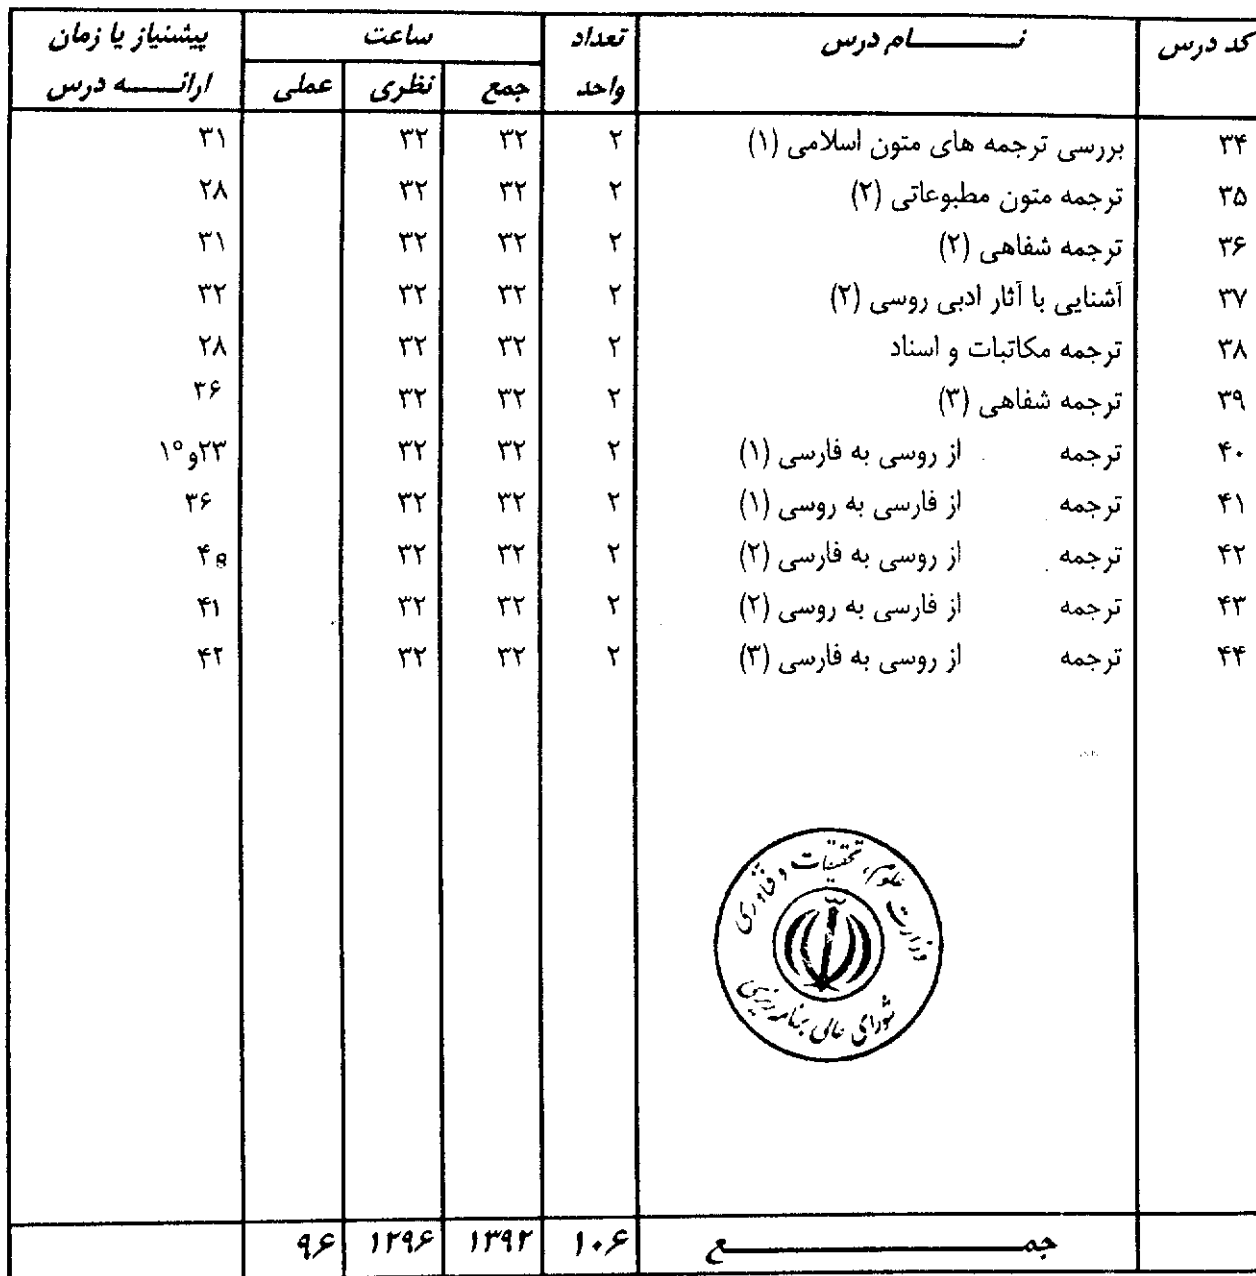 کد درس نـــــام درس تعداد واحد ساعت پیشنیاز یا زمان ارائـــه درس
جمع نظری عملی
۳۴ بررسی ترجمه های متون اسلامی (۱) ۲ ۳۲ ۳۲ ۳۱
۳۵ ترجمه متون مطبوعاتی (۲) ۲ ۳۲ ۳۲ ۲۸
۳۶ ترجمه شفاهی (۲) ۲ ۳۲ ۳۲ ۳۱
۳۷ آشنایی با آثار ادبی روسی (۲) ۲ ۳۲ ۳۲ ۳۲
۳۸ ترجمه مکاتبات و اسناد ۲ ۳۲ ۳۲ ۲۸
۳۹ ترجمه شفاهی (۳) ۲ ۳۲ ۳۲ ۳۶
۴۰ ترجمه از روسی به فارسی (۱) ۲ ۳۲ ۳۲ ۲۳و۱۰
۴۱ ترجمه از فارسی به روسی (۱) ۲ ۳۲ ۳۲ ۳۶
۴۲ ترجمه از روسی به فارسی (۲) ۲ ۳۲ ۳۲
۴۳ ترجمه از فارسی به روسی (۲) ۲ ۳۲ ۳۲ ۴۱
۴۴ ترجمه از روسی به فارسی (۳) ۲ ۳۲ ۳۲ ۴۲
وزارت علوم، تحقیقات و فنآوری
شورای عالی برنامه ریزی
جمـــــع ۱۰۶ ۱۳۹۲ ۱۲۹۶ ۹۶